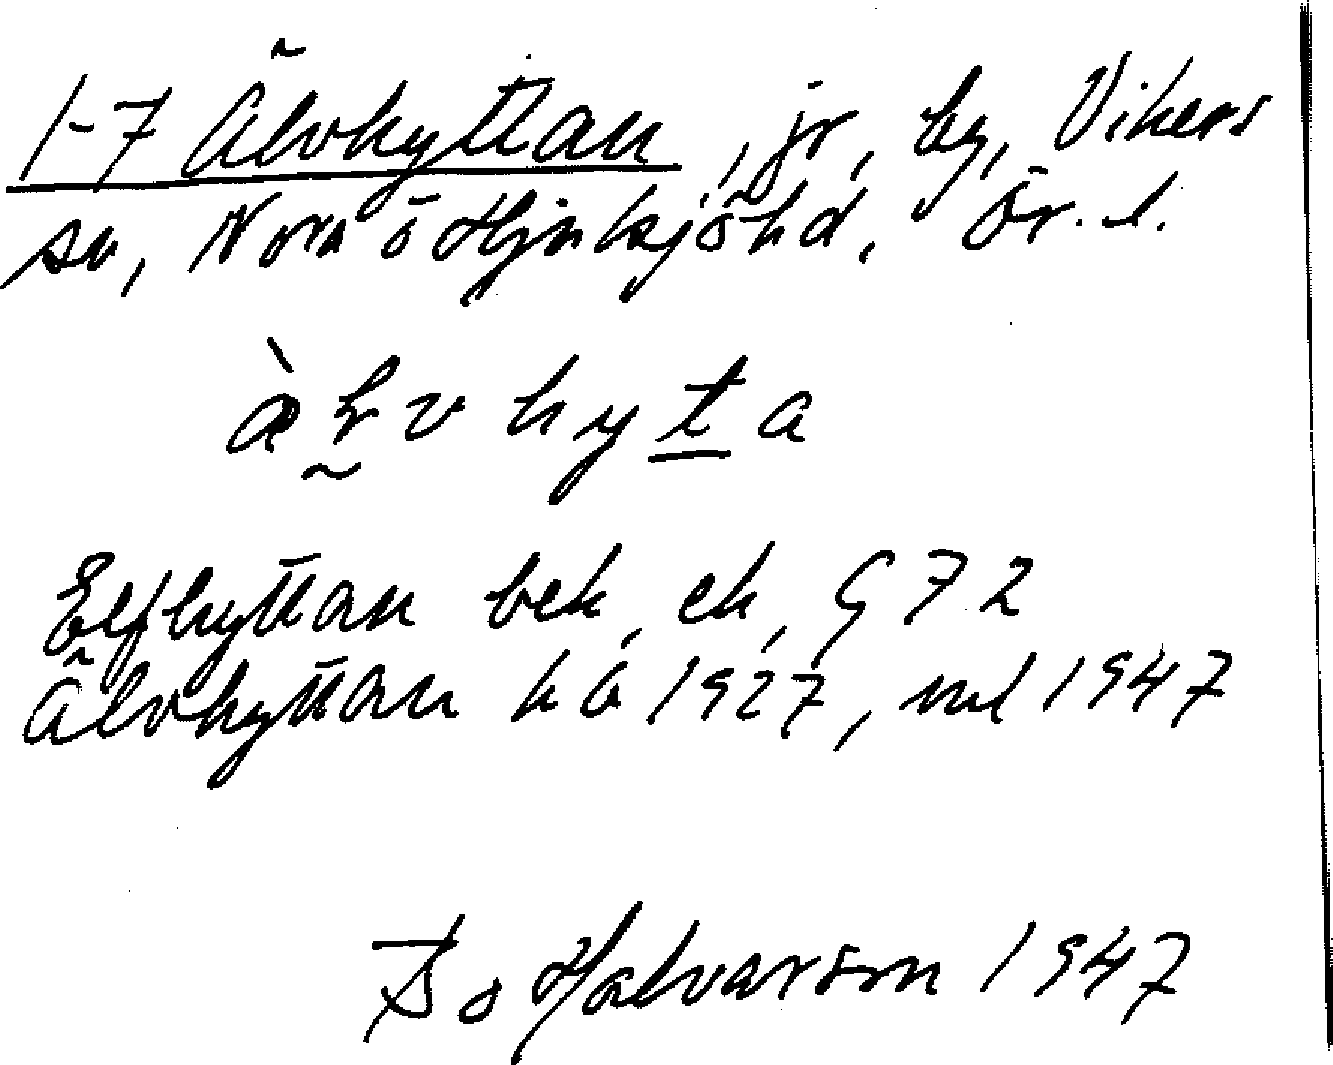 1-7 Älvhyttan, jr, by, Vikers
sn, Nora o Hjulsjö hd, Ör. l.
Elfhyttan bek, ek, G 72
Älvhyttan 1927, 1947
Halvarson 1947